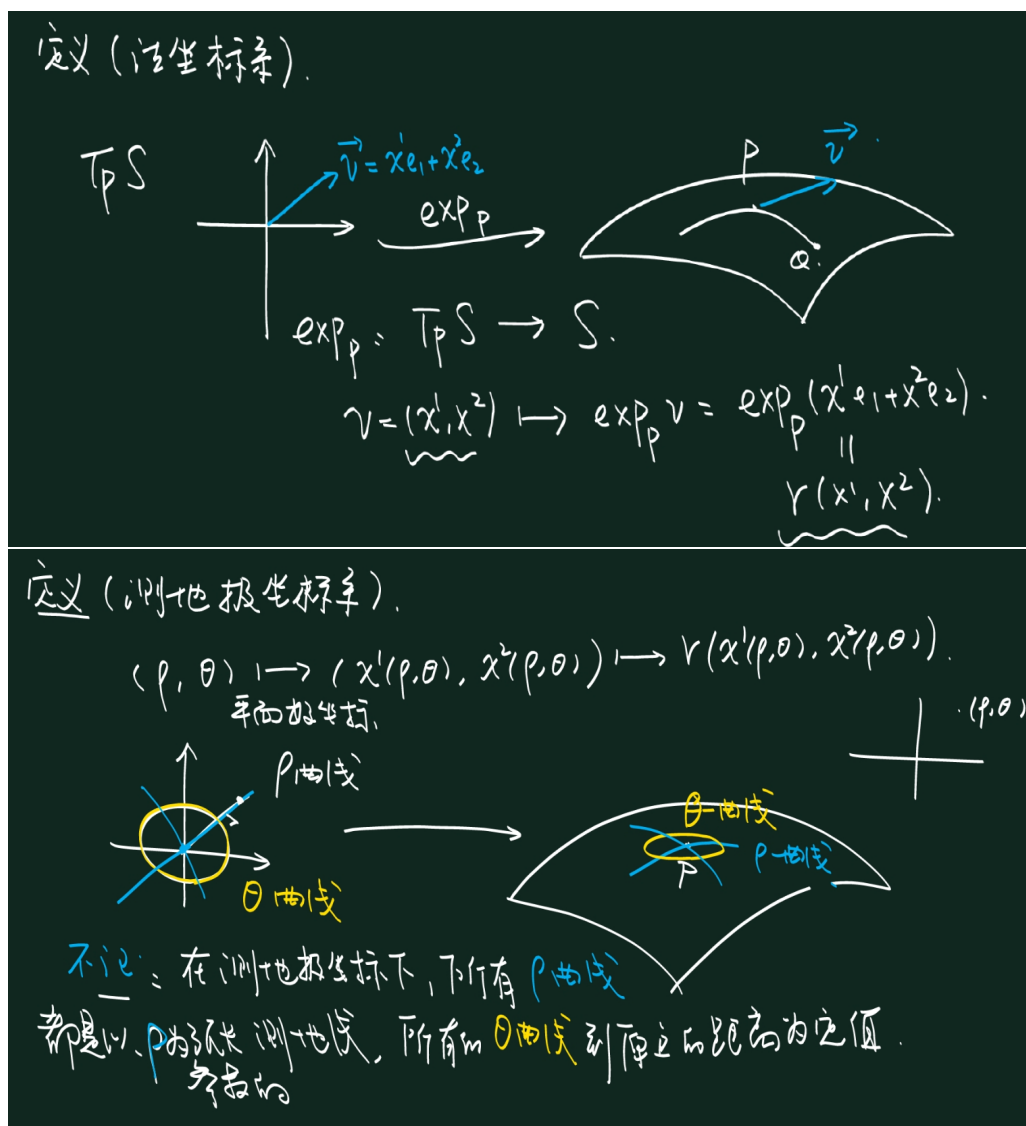 定义 (法坐标系).
TpS
v⃗ = x¹e₁+x²e₂
exp_p
P
v⃗
Q
exp_p: TpS → S.
v=(x¹,x²) ↦ exp_p v = exp_p(x¹e₁+x²e₂).
||
r(x¹,x²).
定义 (测地极坐标系).
(ρ, θ) ↦ (x¹(ρ,θ), x²(ρ,θ)) ↦ r(x¹(ρ,θ), x²(ρ,θ)).
平面极坐标
(ρ,θ)
ρ曲线
θ曲线
θ-曲线
ρ-曲线
P
在测地极坐标下,所有ρ曲线
都是以ρ为弧长参数的测地线,所有的θ曲线到原点的距离为定值.